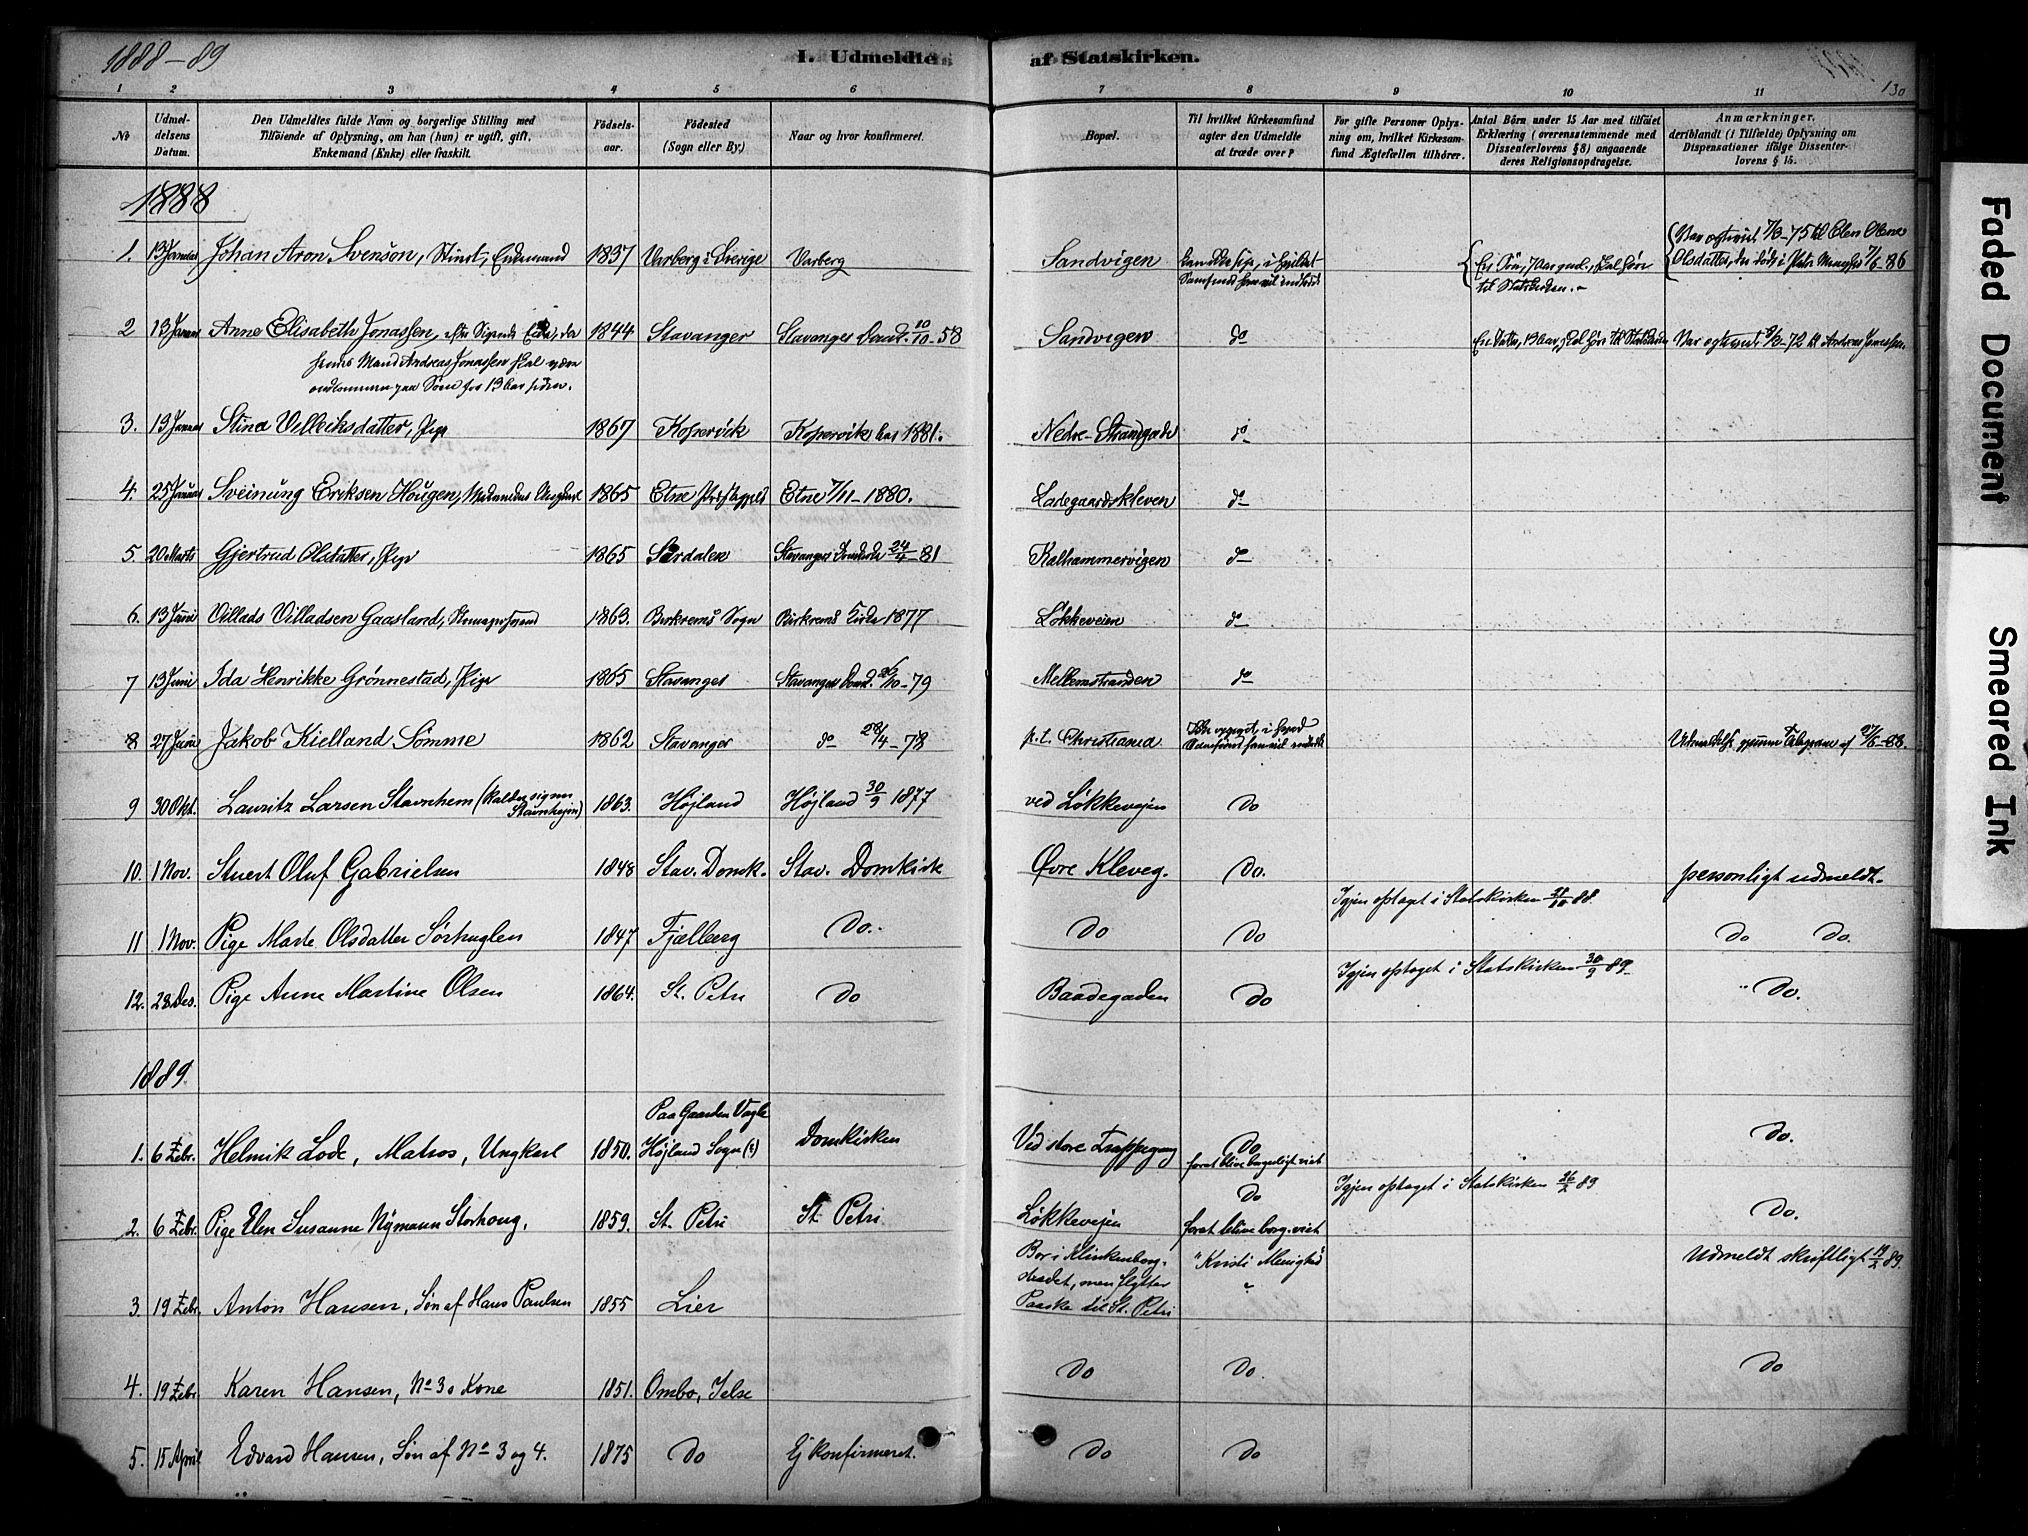 1888-89
I. Udmeldte af Statskirken.
130
1 2 3 4 5 6 7 8 9 10 11
No
Udmeldelsens Datum.
Den Udmeldtes fulde Navn og borgerlige Stilling med
Tilföiende af Oplysning, om han (hun) er ugift, gift,
Enkemand (Enke) eller fraskilt.
Födselsaar.
Födested
(Sogn eller By.)
Naar og hvor konfirmeret.
Bopæl.
Til hvilket Kirkesamfund
agter den Udmeldte
at træde over?
For gifte Personer Oplysning om, hvilket Kirkesamfund Ægtefællen tilhörer.
Antal Börn under 15 Aar med tilföiet
Erklæring (overensstemmende med
Dissenterlovens § 8) angaaende
deres Religionsopdragelse.
Anmærkninger,
deriblandt (i Tilfælde) Oplysning om
Dispensationer ifölge Dissenterlovens § 15.
1888
1. 13 Januar Johan Aron Svenson, Enkemand 1837 Varberg i Sverige Varberg Sandvigen
2 13 Januar Anne Elisabeth Jonassen, 1844 Stavanger Stavanger Domk. 10/10-58 Sandvigen do
hvis Mand Andreas Jonassen skal være
omkommen paa Søen for 13 Aar siden.
3. 13 Januar Stina Villeiksdatter, Pige 1867 Kopervik Kopervik 1881. Nedre Strandgade do
4. 25 Januar Sveinung Eriksen Hougen, 1865 Etne Etne 7/11-1880. Ladegaardskleven do
5. 20 Marts Gjertrud Olsdatter, Pige 1865 Sirdalen Stavanger Domkirke 24/4 81 Kalhammervigen do
6. 13 Juni Villads Villadsen Gaasland, 1863. Birkrems Sogn Birkrems Kirke 1877 Løkkeveien do
7 13 Juni Ida Henrikke Grönnestad, Pige 1865 Stavanger Stavanger Domk. 79 Mellemstranden do
8 27 Juni Jakob Kielland Sömme 1862 Stavanger do 28/4-78 p.t. Christiania
9 30 Okt. Lauritz Larsen Stavnehem (kalder sig nu Stavnheim) 1863. Højland Højland 30/9 1877 ved Løkkevejen Do
10. 1 Nov. Stuert Oluf Gabrielsen 1848 Stav. Domk. Stav. Domkirke Øvre Kleveg. Do. personligt udmeldt.
Igjen optaget i Statskirken 88.
11 1 Nov. Pige Marte Olsdatter Sörhuglen 1847 Fjelberg Do. Do Do Do Do.
Igjen optaget i Statskirken 30/9 89.
12. 28 Des. Pige Anne Martine Olsen 1864. St. Petri Do Baadegaden Do " Do.
1889.
1. 6 Febr. Helmik Lode, Matros, Ungkarl 1850. Paa Gaarden Vagle Højland Sogn (?) Domkirken Ved store Trappegang Do Do.
forat blive borgerligt viet
Igjen optaget i Statskirken 89
2. 6 Febr. Pige Elen Susanne Nymann Storhoug. 1859. St. Petri St. Petri Løkkevejen Do Do.
forat blive borg. viet
3. 19 Febr. Anton Hansen, Søn af Hans Paulsen 1855 Lier Bor i Klinkenborgstredet, men flytter Paaske til St. Petri "Kristi Menighed" Udmeldt skriftligt 19/2 89.
4. 19 Febr. Karen Hansen, No 3s Kone 1851. Ombo, Jelse Do Do. Do
5. 15 April Edvard Hansen, Søn af No 3 og 4. 1875 Do Ej konfirmeret. Do Do
Faded Document
Smeared Ink